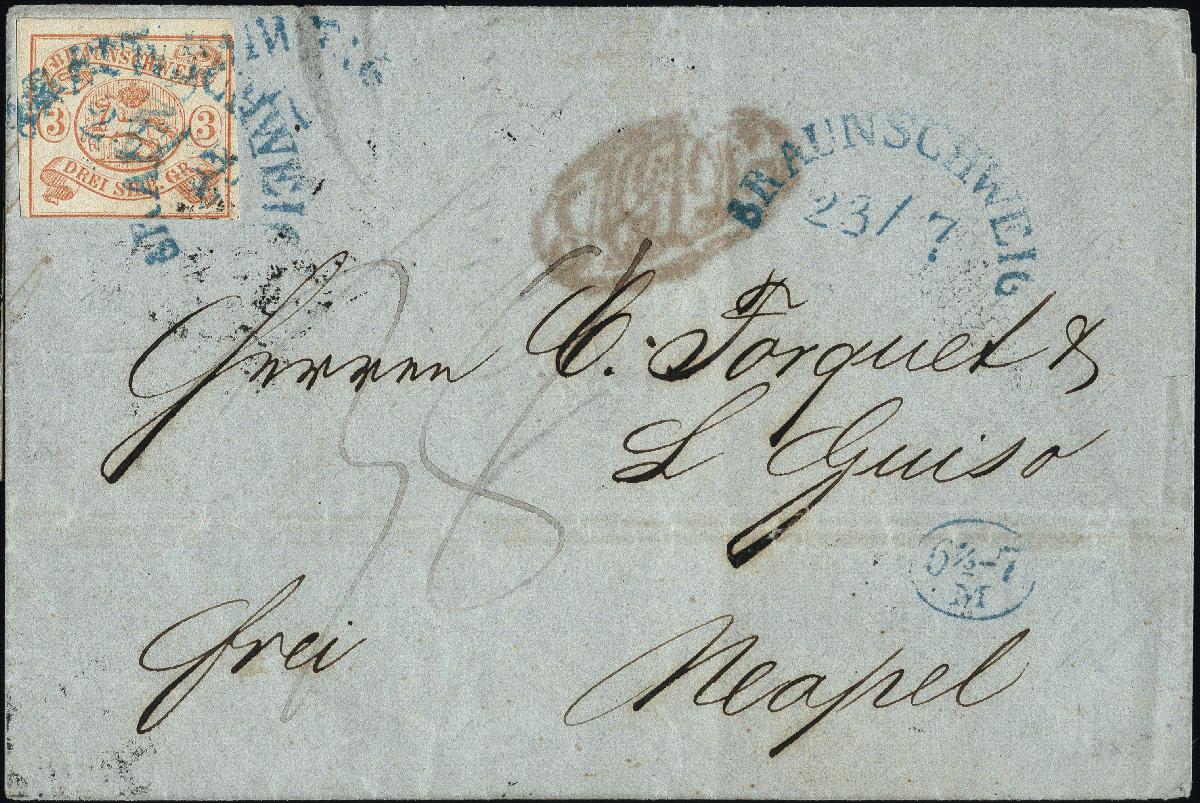 BRAUNSCHWEIG
3 3
DREI SILB. GR.
BRAUNSCHWEIG
23/7
Herren C. Forquet &
L Guiso
6½-7
M
frei
Neapel
38